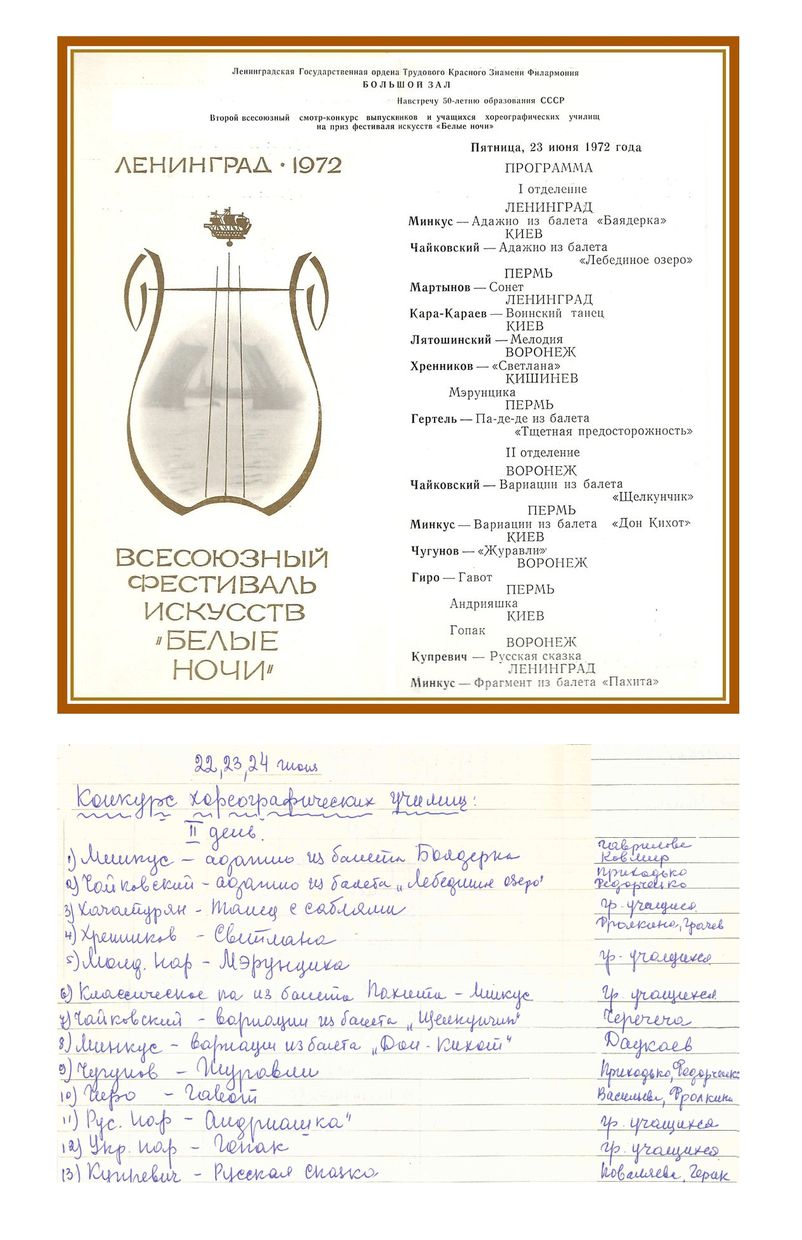 Ленинградская Государственная ордена Трудового Красного Знамени Филармония
БОЛЬШОЙ ЗАЛ
Навстречу 50-летию образования СССР
Второй всесоюзный смотр-конкурс выпускников и учащихся хореографических училищ
на приз фестиваля искусств «Белые ночи»
ЛЕНИНГРАД · 1972
ВСЕСОЮЗНЫЙ
ФЕСТИВАЛЬ
ИСКУССТВ
"БЕЛЫЕ
НОЧИ"
Пятница, 23 июня 1972 года
ПРОГРАММА
I отделение
ЛЕНИНГРАД
Минкус — Адажио из балета «Баядерка»
КИЕВ
Чайковский — Адажио из балета
«Лебединое озеро»
ПЕРМЬ
Мартынов — Сонет
ЛЕНИНГРАД
Кара-Караев — Воинский танец
КИЕВ
Лятошинский — Мелодия
ВОРОНЕЖ
Хренников — «Светлана»
КИШИНЕВ
Мэрунцика
ПЕРМЬ
Гертель — Па-де-де из балета
«Тщетная предосторожность»
II отделение
ВОРОНЕЖ
Чайковский — Вариации из балета
«Щелкунчик»
ПЕРМЬ
Минкус — Вариации из балета «Дон Кихот»
КИЕВ
Чугунов — «Журавли»
ВОРОНЕЖ
Гиро — Гавот
ПЕРМЬ
Андрияшка
КИЕВ
Гопак
ВОРОНЕЖ
Купревич — Русская сказка
ЛЕНИНГРАД
Минкус — Фрагмент из балета «Пахита»
22, 23, 24 июня
Конкурс хореографических училищ:
II день.
1) Минкус – адажио из балета Баядерка Гаврилова Ковмир
2) Чайковский – адажио из балета „Лебединое озеро" Приходько Федорченко
3) Хачатурян – Танец с саблями гр. учащихся
4) Хренников – Светлана Фролкина, Грачев
5) Молд. нар – Мэрунцика гр. учащихся
6) Классическое па из балета Пахита – Минкус гр. учащихся
7) Чайковский – вариации из балета „Щелкунчик" Черечеча
8) Минкус – вариации из балета „Дон-Кихот" Даукаев
9) Чугунов – Журавли Приходько, Федорченк
10) Гиро – Гавот Васильева, Фролкина
11) Рус. нар – Андриашка" гр. учащихся
12) Укр. нар – Гопак гр. учащихся
13) Купревич – Русская сказка Ковалева, Герак